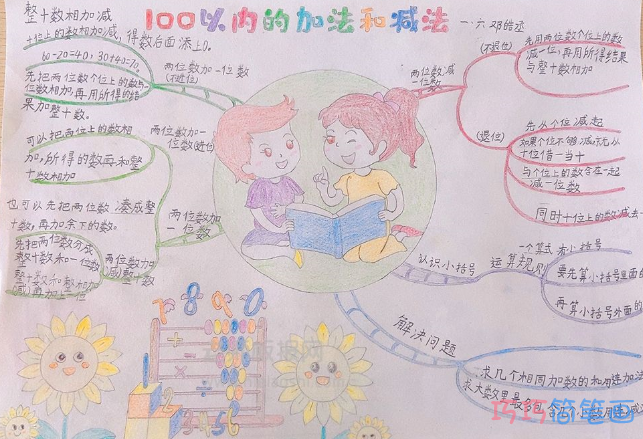 100以内的加法和减法
一.六.邓皓丞
整十数相加减
十位上的数相加减,得数后面添上0。
60-20=40,30+40=70
先把两位数个位上的数与一
位数相加,再用所得的结
果加整十数。
两位数加一位数
(不进位)
可以把两位上的数相
加,所得的数再和整
十数相加
两位数加一
位数(进位)
也可以先把两位数凑成整
十数,再加余下的数。
两位数加
一位数
先把两位数分成
整十数和一位数
整十数和整相加
两位数加
(减)整十数
两位数减
一位数
(不退位)
先用两位数个位上的数
减一位,再用所得结果
与整十数相加
(退位)
先从个位减起
如果个位不够减,就从
十位借一当十
与个位上的数合在一起
减一位数
同时十位上的数减去
认识小括号
运算规则
一个算式有小括号
要先算小括号里面的
再算小括号外面的
解决问题
求几个相同加数的和用连加法
求大数里最多包含几个小数用连减
7890
巧巧简笔画